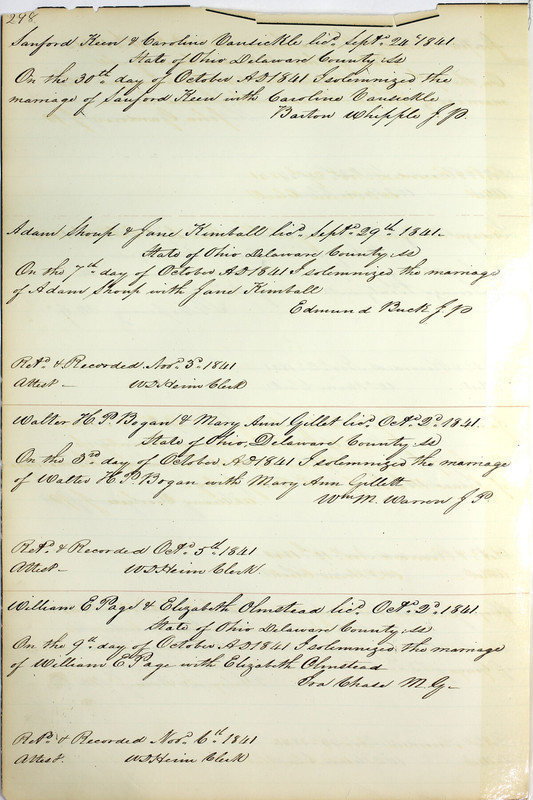 298
Sanford Keen & Caroline Vansickle licd. Sept. 24th 1841.
State of Ohio Delaware County ss
On the 30th day of October AD 1841 I solemnized the
marriage of Sanford Keen with Caroline Vansickle
Barton Whipple J.P.
Adam Shoup & Jane Kimball licd. Sept. 29th 1841.
State of Ohio Delaware County ss
On the 7th day of October AD 1841 I solemnized the marriage
of Adam Shoup with Jane Kimball
Edmund Buck J.P
Retd. & Recorded Nov. 5. 1841
Attest - W.D. Heim Clerk
Walter H. P. Bogan & Mary Ann Gillet licd. Oct. 2d. 1841.
State of Ohio, Delaware County ss
On the 3rd day of October AD 1841 I solemnized the marriage
of Walter H. P. Bogan with Mary Ann Gillett
Wm M. Warren J P.
Retd. & Recorded Oct. 5th 1841
Attest - W.D. Heim Clerk.
William E Page & Elizabeth Olmstead licd. Oct. 2d. 1841.
State of Ohio Delaware County ss
On the 9th day of October AD 1841 I solemnized the marriage
of William E Page with Elizabeth Olmstead
Ira Chase M.G.
Retd. & Recorded Nov. 6th 1841
Attest. W.D. Heim Clerk